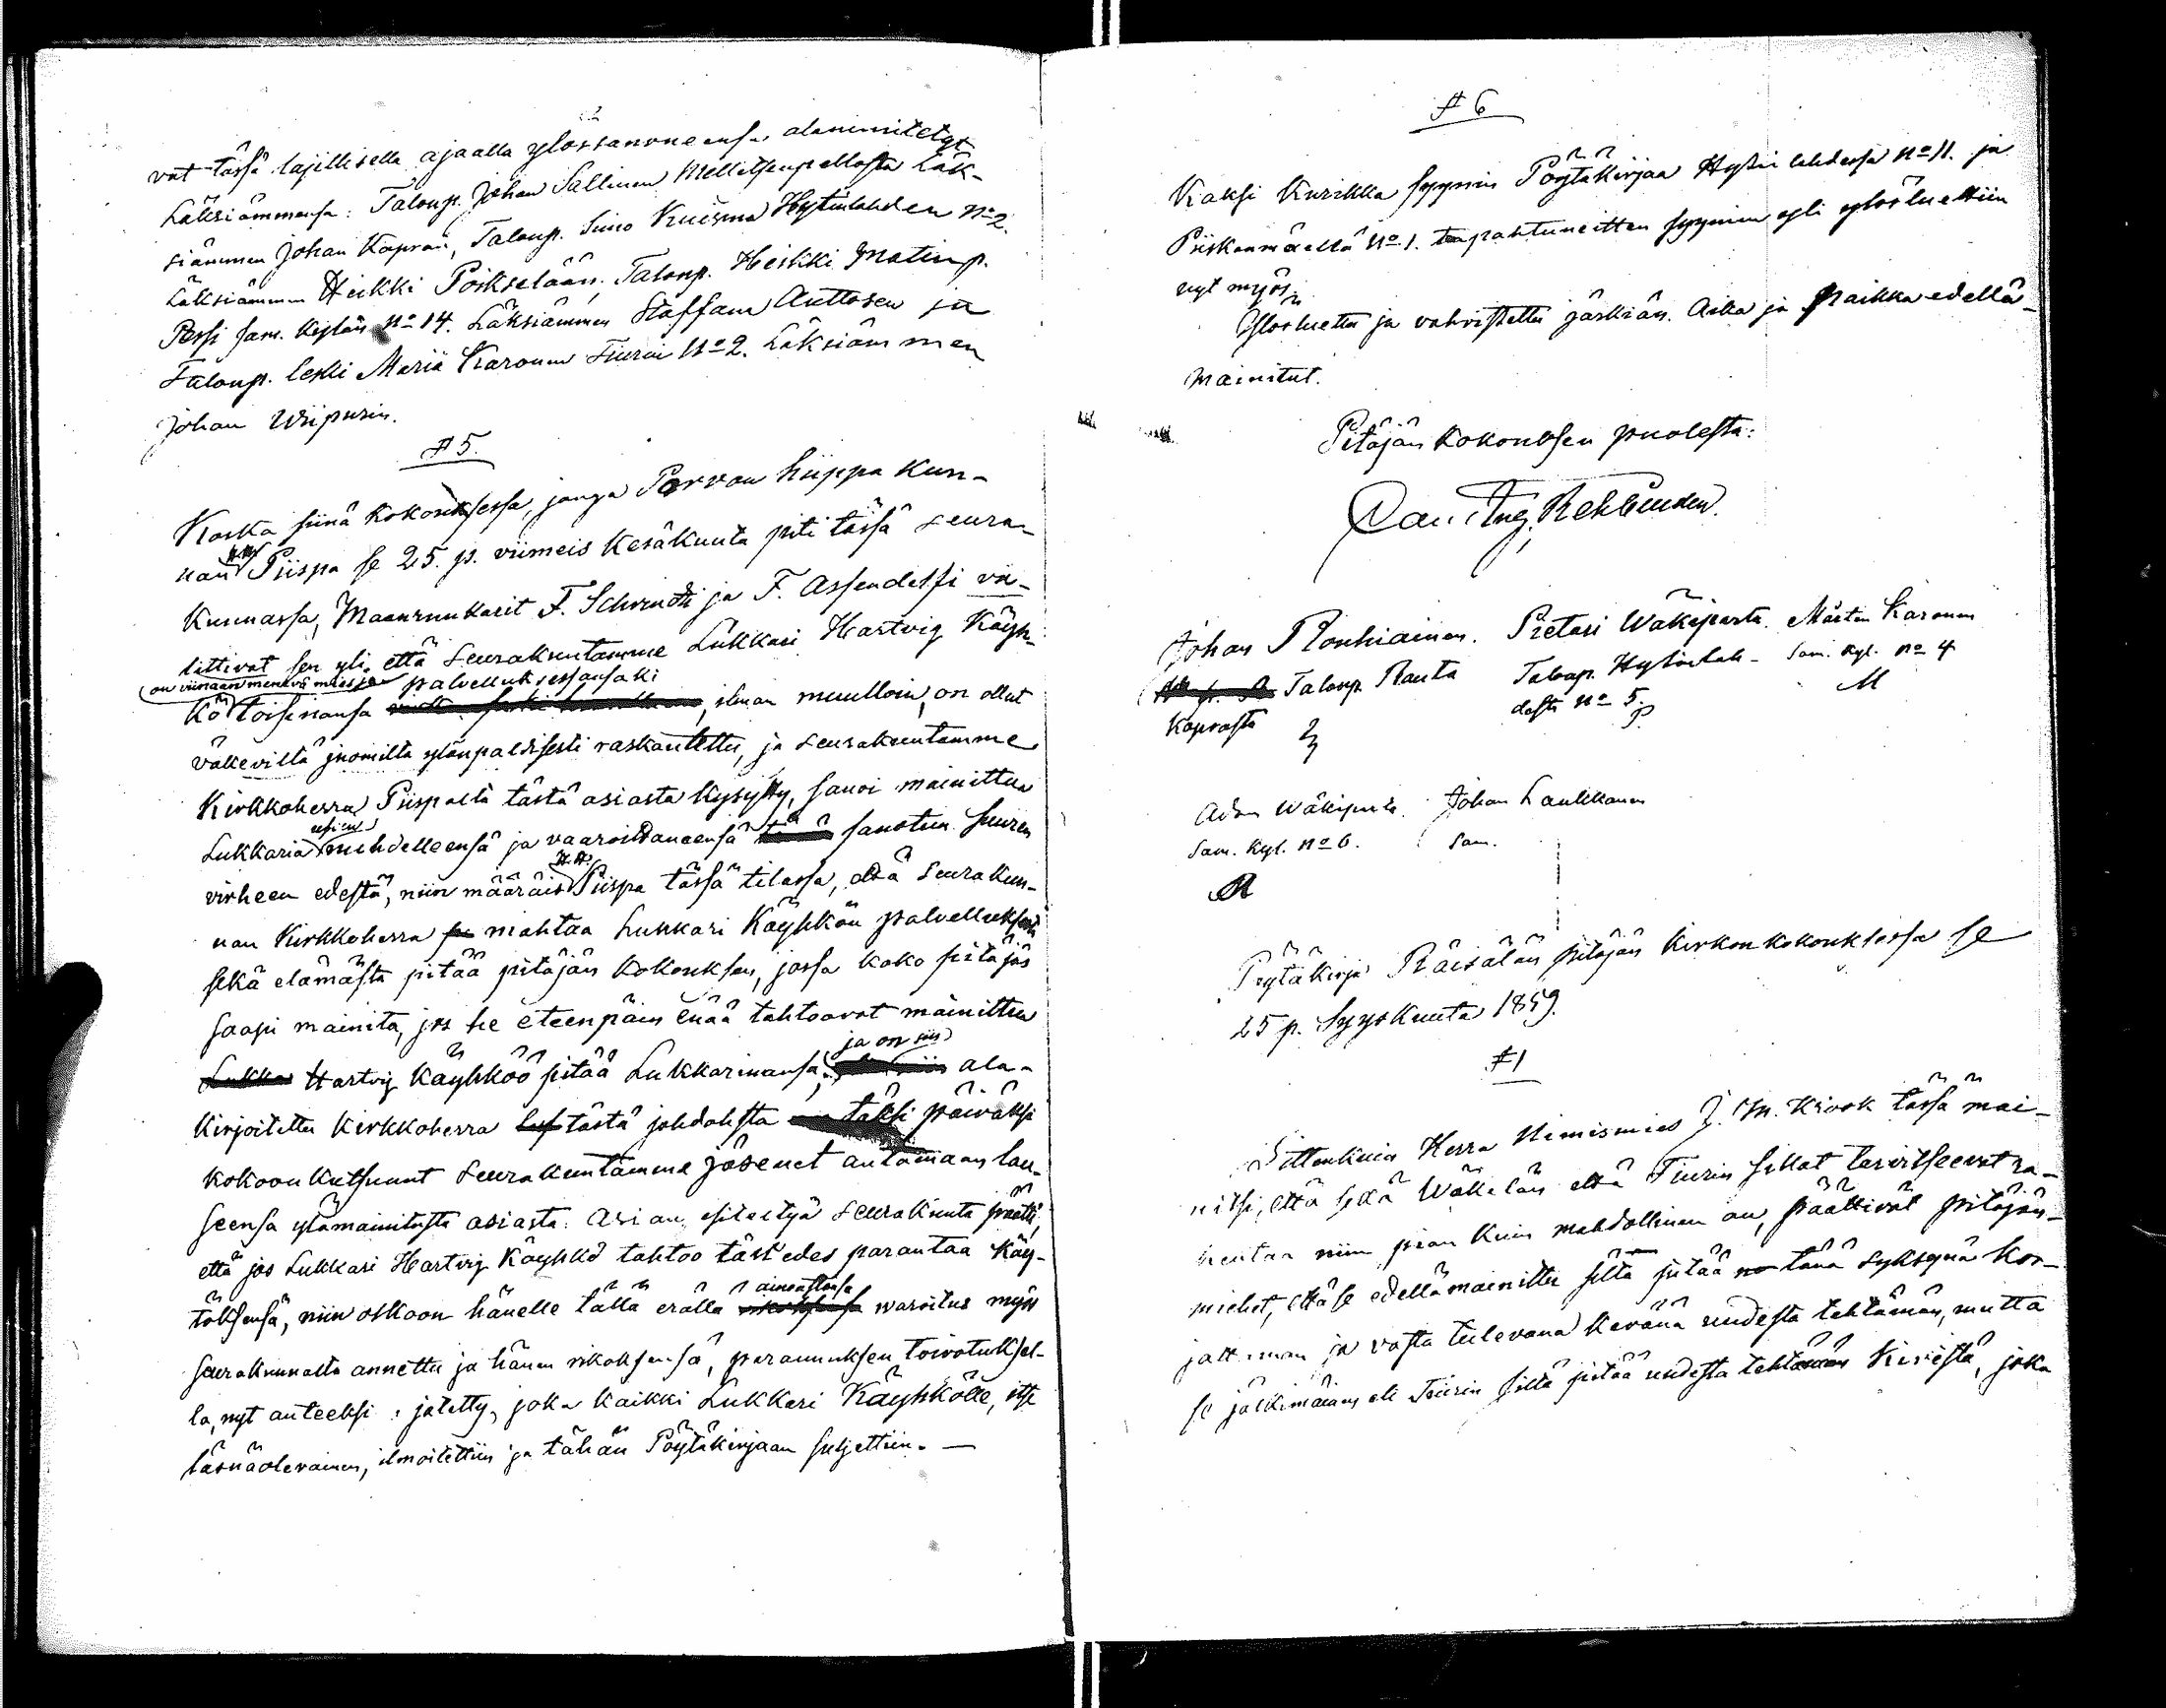 vat tässä lajillisella ajaalla ylössanoneensa alanimitetyt
Läksiämmensä: Taloup. Johan Sallinen Mellitsenpellosta Läk-
siämmen Johan Kaprai, Taloup. Simo Kuisma Hytinlahden No 2.
Läksiämmen Heikki Poikselään, Taloup. Heikki Matinp.
Pessi sam. kylän No 14. Läksiämmen Staffan Auttosen ja
Taloup. leski Maria Karonen Tiurin No 2. Läksiämmen
Johan Wiipurin.
# 5.
Koska siinä kokouksessa, jonga Porvon hiippa kun-
nan Piispa se 25. p. viimeis Kesäkuuta piti tässä seura-
kunnassa, Maanrunkarit F. Schrundti ja F. Assendelfi va-
littivat sen yli, että Seurakuntamme Lukkari Hartvig Käyh-
on viinaan menevä mies ja palvelluksessansaki
kö toisinansa , ilman muulloin, on ollut
väkeviltä juomilta ylönpaldisesti raskautettu, ja Seurakuntamme
Kirkkoherra Piispalta tästä asiasta kysytty, sanoi mainittua
usein
Lukkaria nuhdelleensa ja vaaroittaneensä sanotun suuren
H. H.
virheen edestä, niin määräis Piispa tässä tilassa, että Seurakun-
nan Kirkkoherra mahtaa Lukkari Käyhkön palvelluksesta
sekä elämästä pitää pitäjän kokouksen, jossa koko pitäjäs
saapi mainita, jos he eteenpäin enää tahtoovat mainittua
ja on siis
Hartvig Käyhköö pitää Lukkarinansa; ala-
kirjoitettu Kirkkoherra tästä johdahosta täksi päiväksi
kokoon kutsunut Seurakuntamme jäsenet antamaan lau-
seensa ylämainitusta asiasta. Asian esiteltyä Seurakunta päätti,
että jos Lukkari Hartvig Käyhkö tahtoo täst edes parantaa käy-
ainoastansa
töksensä, niin olkoon hänelle tällä erällä waroitus myös
seurakunnalta annettu ja hänen rikoksensa, parannuksen toivotuksel-
la, nyt anteeksi jätetty, joka kaikki Lukkari Käyhkölle, itse
läsnäolevainen, ilmoitettiin ja tähän Pöytäkirjaan suljettiin. —
# 6
Kaksi Kurikka syynin Pöytäkirjaa Hytinlahdessa No 11. ja
Piiskanmäellä No 1. tapahtuneitten syynien yli ylösluettiin
nyt myös.
Ylösluettu ja vahvistettu järkiän. Aika ja paikka edellä-
mainitut.
Pitäjän kokouksen puolesta:
Johan Rouhiainen. Pietari Wäkiparta. Mårten Karonen
Taloup. Rauta Taloup. Hytinlah- Sam. kyl. No 4
Kaprasta desta No 5. M
P.
Adam Wäkiparta Johan Laukkanen
Sam. kyl. No 6. Sam.
Pöytäkirja Räisälän pitäjän Kirkonkokouksessa se
25 p. Syyskuuta 1859.
# 1
Sittenkuin Herra Nimismies J. M. Krook tässä mai-
nitsi, että sekä Wäkelän että Tiurin sillat tarvitseevat ra-
kentaa niin pian kuin mahdollinen on, päättivät pitäjän-
miehet, että se edellämainittu silta pitää tänä syksynä kor-
jattaman ja vasta tulevana keväänä uudesta tehtämän, mutta
se jälkimäinen eli Tiurin silta pitää uudesta tehtämän kivistä, joka